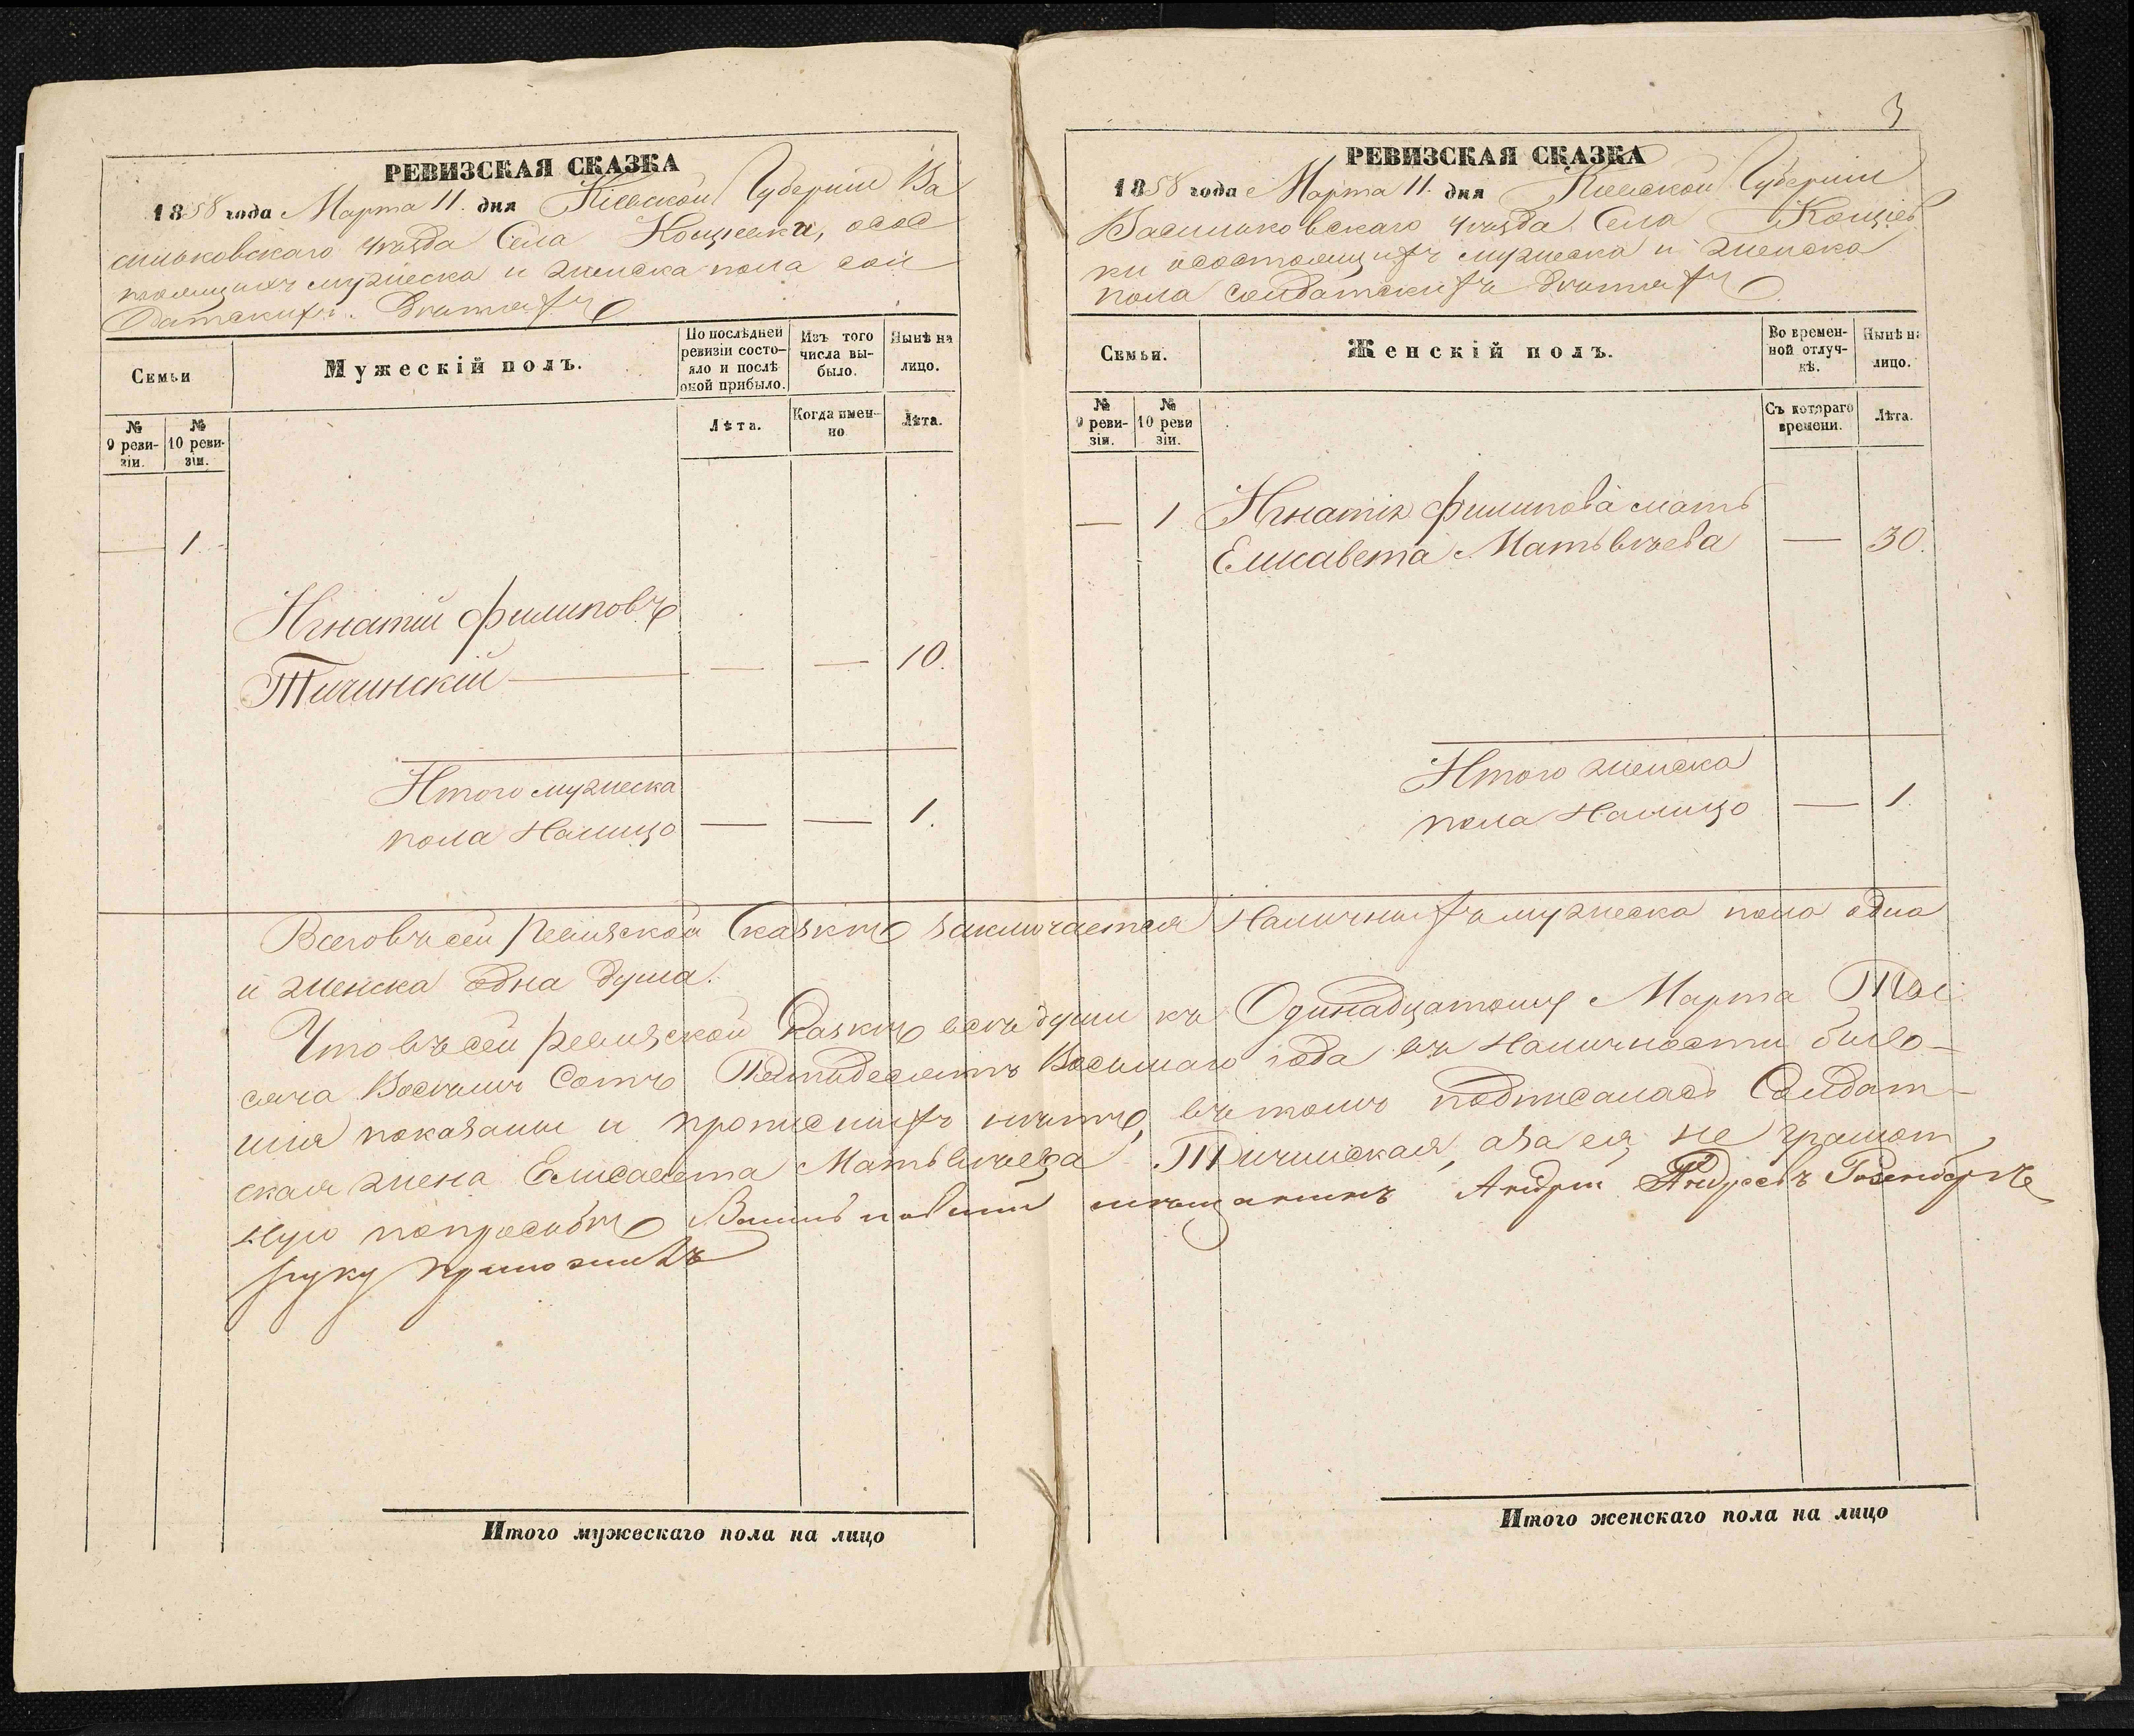 РЕВИЗСКАЯ СКАЗКА
1858 года Марта 11. дня Кіевской Губерніи Ва
сильковскаго уѣзда Села Кощіевки, осос
тоящихъ мужеска и женска пола сол
датскихъ дѣтяхъ
Семьи
Мужескій полъ.
По послѣдней ревизіи состояло и послѣ оной прибыло.
Изъ того числа выбыло.
Нынѣ на лицо.
№ 9 ревизіи.
№ 10 ревизіи.
Лѣта.
Когда именно
Лѣта.
— 1.
Игнатій Филиповъ
Тичинскій — — — 10.
Итого мужеска
пола налицо — — 1.
Итого мужескаго пола на лицо
3
РЕВИЗСКАЯ СКАЗКА
1858 года Марта 11. дня Кіевской Губерніи
Васильковскаго уѣзда Села Кощіев
ки осостоящихъ мужеска и женска
пола солдатскихъ дѣтяхъ
Семьи.
Женскій полъ.
Во временной отлучкѣ.
Нынѣ на лицо.
№ 9 ревизіи.
№ 10 ревизіи.
Съ котораго времени.
Лѣта.
— 1 Игнатія Филипова мать
Елисавета Матьвѣева — 30.
Итого женска
пола налицо — 1.
Всего въ сей Ревизской Сказкѣ заключается наличныхъ мужеска пола одна
и женска одна душа.
Что въ сей Ревизской Сказкѣ всѣ души къ Одинадцатому Марта Тыс
сяча Восемь Сотъ Пятидесятъ Восьмаго года въ наличности бывъ-
шія показаны и прописныхъ нѣтъ, въ томъ подписалась Солдат-
ская жена Елисавета Матьвѣева Тичинская, а за ея не грамот
ную по просьбѣ мѣщанинъ Андрей Андреевъ
руку приложилъ
Итого женскаго пола на лицо